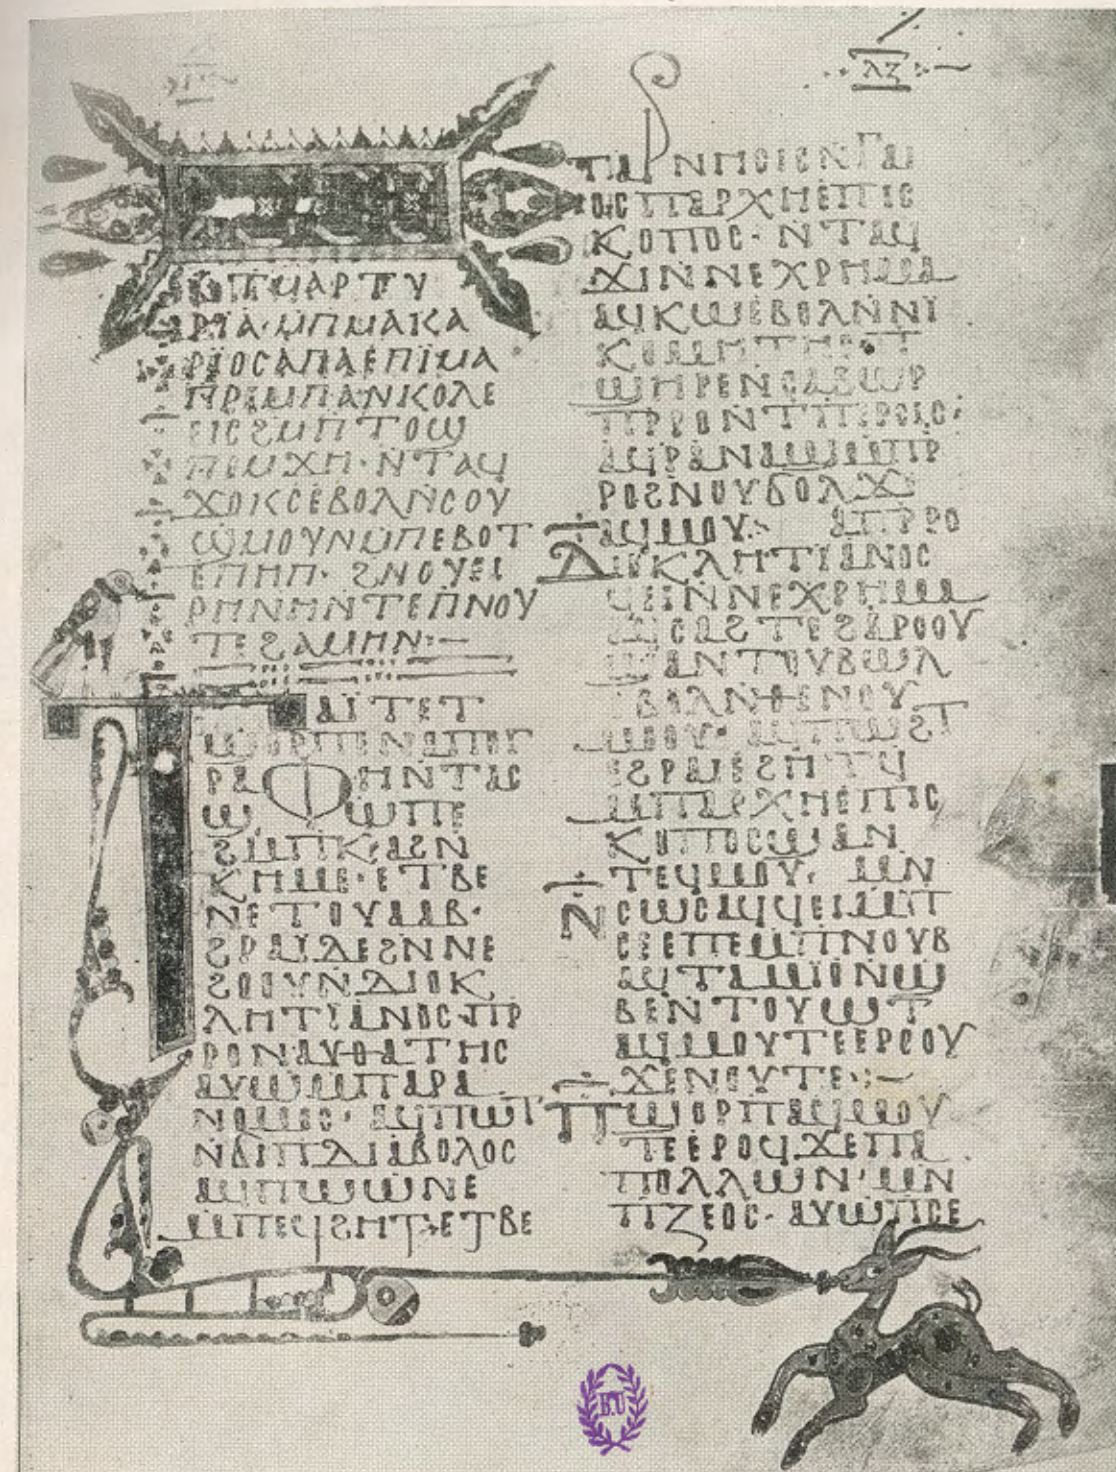 ⲗⲍ
ⲧⲙⲁⲣⲧⲩ
ⲣⲓⲁ· ⲙⲡⲙⲁⲕⲁ
ⲣⲓⲟⲥ ⲁⲡⲁ ⲉⲡⲓⲙⲁ
ⲡⲣⲙⲡⲁⲛⲕⲟⲗⲉ
ⲉⲓⲥ ϩⲙ ⲡⲧⲟϣ
ⲡⲉⲙϫⲏ· ⲛⲧⲁϥ
ϫⲟⲕⲥ ⲉⲃⲟⲗ ⲛⲥⲟⲩ
ϣⲙⲟⲩⲛ ⲙⲡⲉⲃⲟⲧ
ⲉⲡⲏⲡ· ϩⲛ ⲟⲩⲉⲓ
ⲣⲏⲛⲏ ⲛⲧⲉ ⲡⲛⲟⲩ
ⲧⲉ ϩⲁⲙⲏⲛ:—
ⲧⲁⲓ ⲧⲉ ⲧ
ϣⲟⲣⲡⲉ ⲛⲁⲡⲟⲅ
ⲣⲁⲫⲏ ⲛⲧⲁⲥ
ϣⲱⲡⲉ
ϩⲙ ⲡⲕⲁϩ ⲛ
ⲕⲏⲙⲉ· ⲉⲧⲃⲉ
ⲛⲉⲧⲟⲩⲁⲁⲃ·
ϩⲣⲁⲓ ⲇⲉ ϩⲛ ⲛⲉ
ϩⲟⲟⲩ ⲛⲇⲓⲟⲕ
ⲗⲏⲧⲓⲁⲛⲟⲥ ⲡⲣ
ⲣⲟ ⲛⲁⲩⲑⲁⲧⲏⲥ
ⲁⲩⲱ ⲙⲡⲁⲣⲁ
ⲛⲟⲙⲟⲥ· ⲁϥⲡⲱⲧ
ⲛϭⲓ ⲡⲇⲓⲁⲃⲟⲗⲟⲥ
ⲁϥⲡⲱⲱⲛⲉ
ⲙⲡⲉϥϩⲏⲧ· ⲉⲧⲃⲉ
ⲛⲅⲁⲓ
ⲟⲥ ⲡⲁⲣⲭⲏⲉⲡⲓⲥ
ⲕⲟⲡⲟⲥ· ⲛⲧⲁϥ
ϫⲓ ⲛⲛⲉⲭⲣⲏⲙⲁ
ⲁϥⲕⲱ ⲉⲃⲟⲗ ⲛⲛⲓ
ⲕⲟⲙⲏⲧⲏⲥ· ⲡ
ϣⲏⲣⲉ ⲛⲥⲁⲃⲱⲣ
ⲡⲣⲣⲟ ⲛⲧⲡⲉⲣⲥⲓⲥ·
ⲣⲟ ϩⲛ ⲟⲩϭⲟⲗ ϫⲉ
ⲁϥⲙⲟⲩ:· ⲁⲡⲣⲣⲟ
ⲇⲓⲟⲕⲗⲏⲧⲓⲁⲛⲟⲥ
ϥⲉⲓ ⲛⲛⲉⲭⲣⲏⲙⲁ
ϣⲁⲛⲧⲟⲩⲃⲱⲗ
ⲉⲃⲟⲗ ⲛⲑⲉ ⲛⲟⲩ
ⲙⲟⲟⲩ· ⲁϥⲡⲱϩⲧ
ⲉϩⲣⲁⲓ ⲉϩⲏⲧϥ
ⲙⲡⲁⲣⲭⲏⲉⲡⲓⲥ
ⲕⲟⲡⲟⲥ ϣⲁⲛ
ⲧⲉϥⲙⲟⲩ· ⲙⲛ
ⲛⲥⲱⲥ ⲁϥϥⲉⲓ ⲙⲡ
ⲥⲉⲉⲡⲉ ⲙⲡⲛⲟⲩⲃ
ⲁϥⲧⲁⲙⲓⲟ ⲛϣ
ⲃⲉ ⲛⲧⲟⲩⲱⲧ
ⲁϥⲙⲟⲩⲧⲉ ⲉⲣⲟⲟⲩ
ϫⲉ ⲛⲟⲩⲧⲉ:—
ⲡϣⲟⲣⲡ ⲁϥⲙⲟⲩ
ⲧⲉ ⲉⲣⲟϥ ϫⲉ ⲡⲁ
ⲡⲟⲗⲗⲱⲛ· ⲙⲛ
ⲡⲍⲉⲟⲥ· ⲁⲩⲱ ⲡⲥⲉ